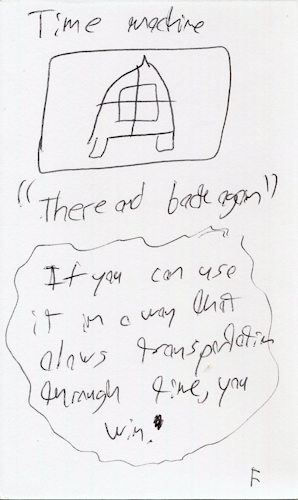 Time machine
"There and back again"
If you can use
it in a way that
alows transportation
through time, you
win.
F